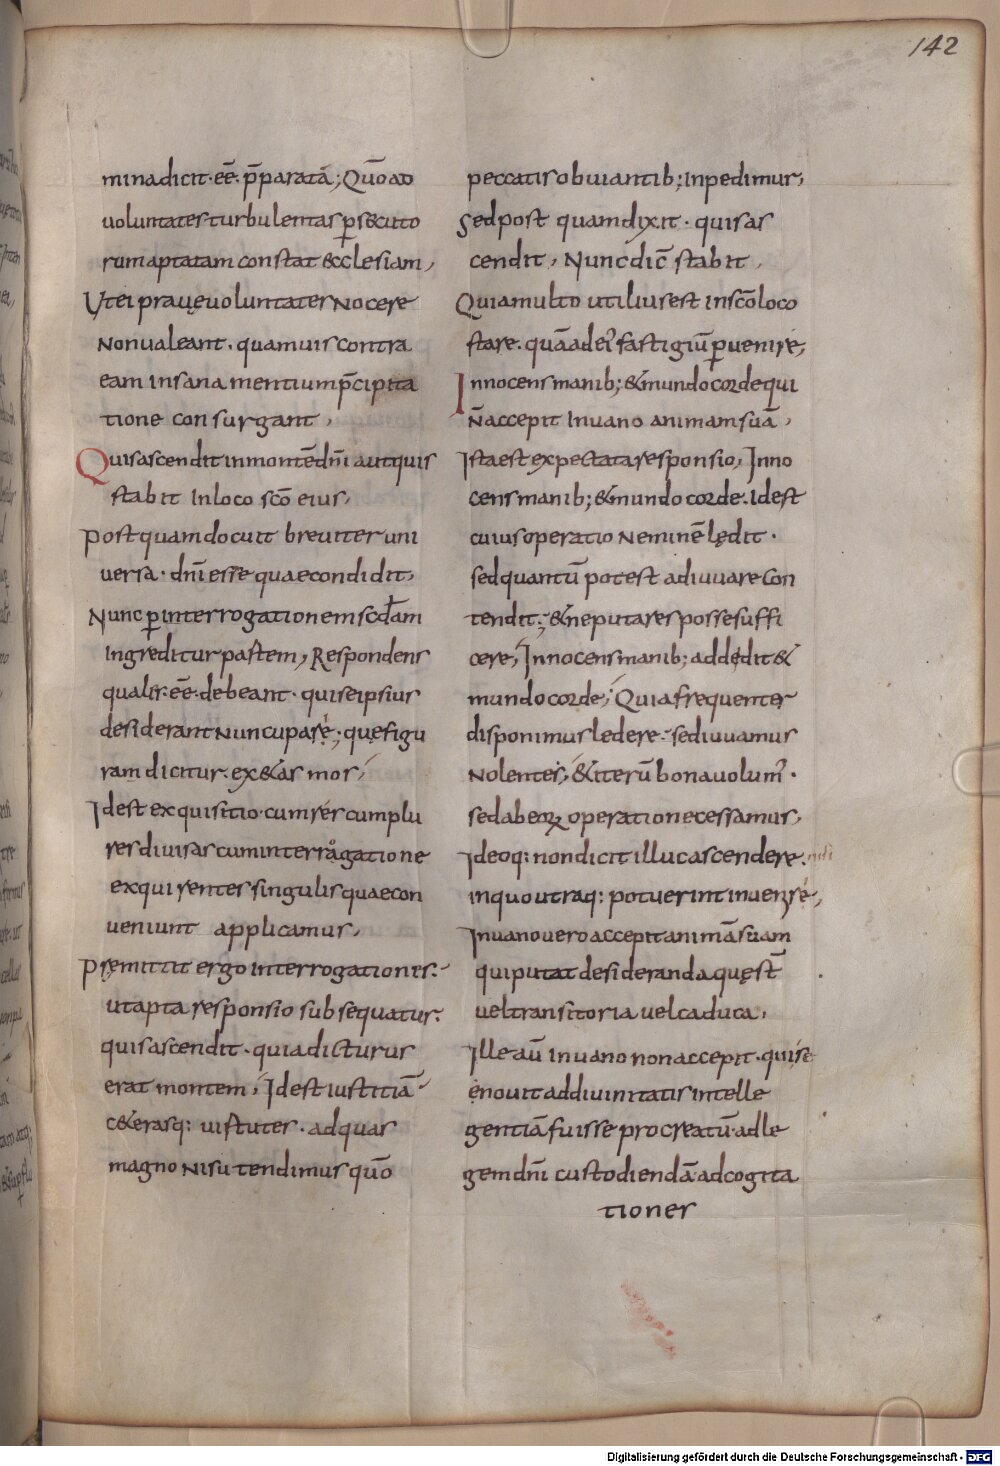 142
minadicit·eē·p̄paratā; Quō ad
voluntates turbulentas ꝑsecuto
rum aptatam constat &cclesiam,
Ut ei pravę voluntates nocere
non valeant· quamvis contra
eam insana mentium p̄cipita
tione consurgant,
Quis ascendit in montē dn̄i aut quis
stabit in loco scō eius,
Post quam docuit breviter uni
versa· dn̄i esse quae condidit,
Nunc ꝑ interrogationem scd̄am
ingreditur partem, Respondens
qualis·eē·debeant· qui se ipsius
desiderant nuncupare; quę figu
ram dicitur· ex&asmos,
Idest exquisitio· cum res cumplu
res divisas cum interrogatione
exquirentes singulis quae con
veniunt applicamus,
Pręmittit ergo interrogationis·
ut apta responsio subsequatur·
quis ascendit· quia dicturus
erat montem, Idest iustitiā
c&erasq: virtutes· ad quas
magno nisu tendimus quō
peccatis obviantib; inpedimur,
Sed post quam dixit· quis as
cendit, Nunc dic̄ stabit,
Quia multo utilius est in scō loco
stare· quā ad ei' fastigiū ꝑvenire,
Innocens manib; & mundo corde qui
n̄ accepit in vano animam suā,
Ista est expectata responsio, Inno
cens manib; & mundo corde· Idest
cuius operatio neminē lędit·
sed quantū potest adiuvare con
tendit; & ne putares posse suffi
cere, Innocens manib; addedit &
mundo corde, Quia frequenter
disponimus ledere· sed iuvamus
nolentes, & iterū bona volum'·
sed ab eoꝝ operatione cessamus,
Ideoq: non dicit illuc ascendere· nisi
in quo utraq: potuerint invenire,
In vano vero accepit animā suam
qui putat desideranda quę st̄
vel transitoria vel caduca,
Ille aū in vano non accepit· qui se
enovit ad divinitatis intelle
gentiā fuisse procreatū· ad le
gem dn̄i custodiendā· ad cogita
tiones
Digitalisierung gefördert durch die Deutsche Forschungsgemeinschaft - DFG